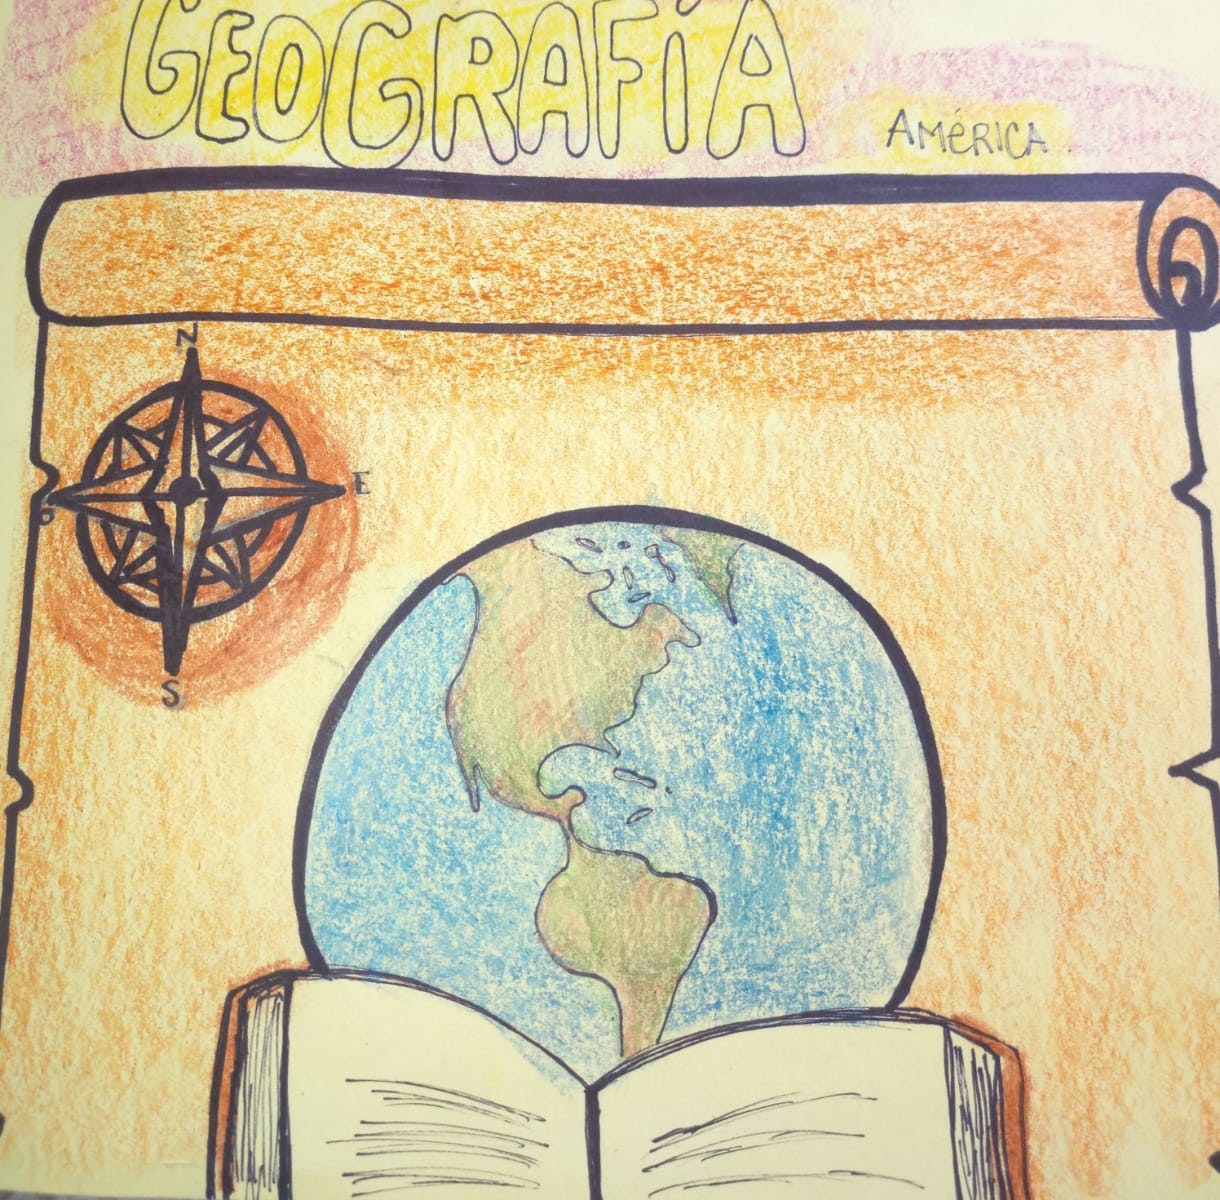 GEOGRAFÍA
AMéRICA.
N
E
O
S